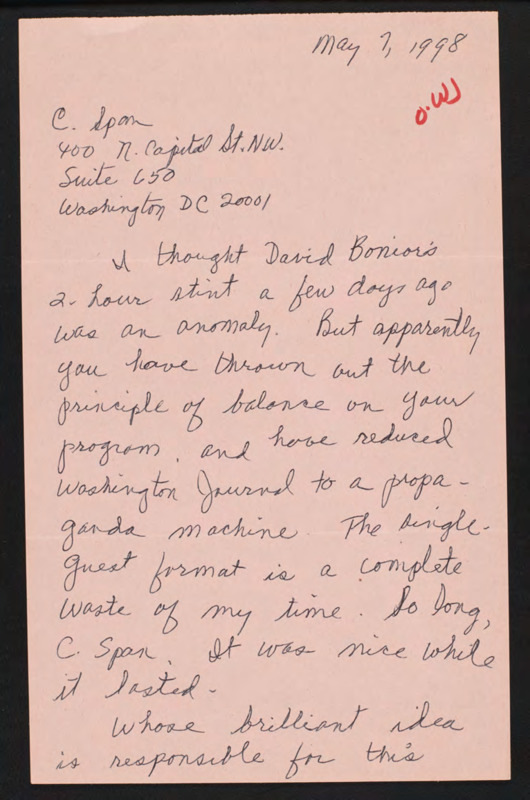 May 7, 1998
O.WJ
C. Span
400 N. Capital St. NW.
Suite 650
Washington DC 20001
I thought David Bonior's
2-hour stint a few days ago
was an anomaly. But apparently
you have thrown out the
principle of balance on your
program, and have reduced
Washington Journal to a propa-
ganda machine. The single-
guest format is a complete
waste of my time. So long,
C. Span. It was nice while
it lasted.
Whose brilliant idea
is responsible for this